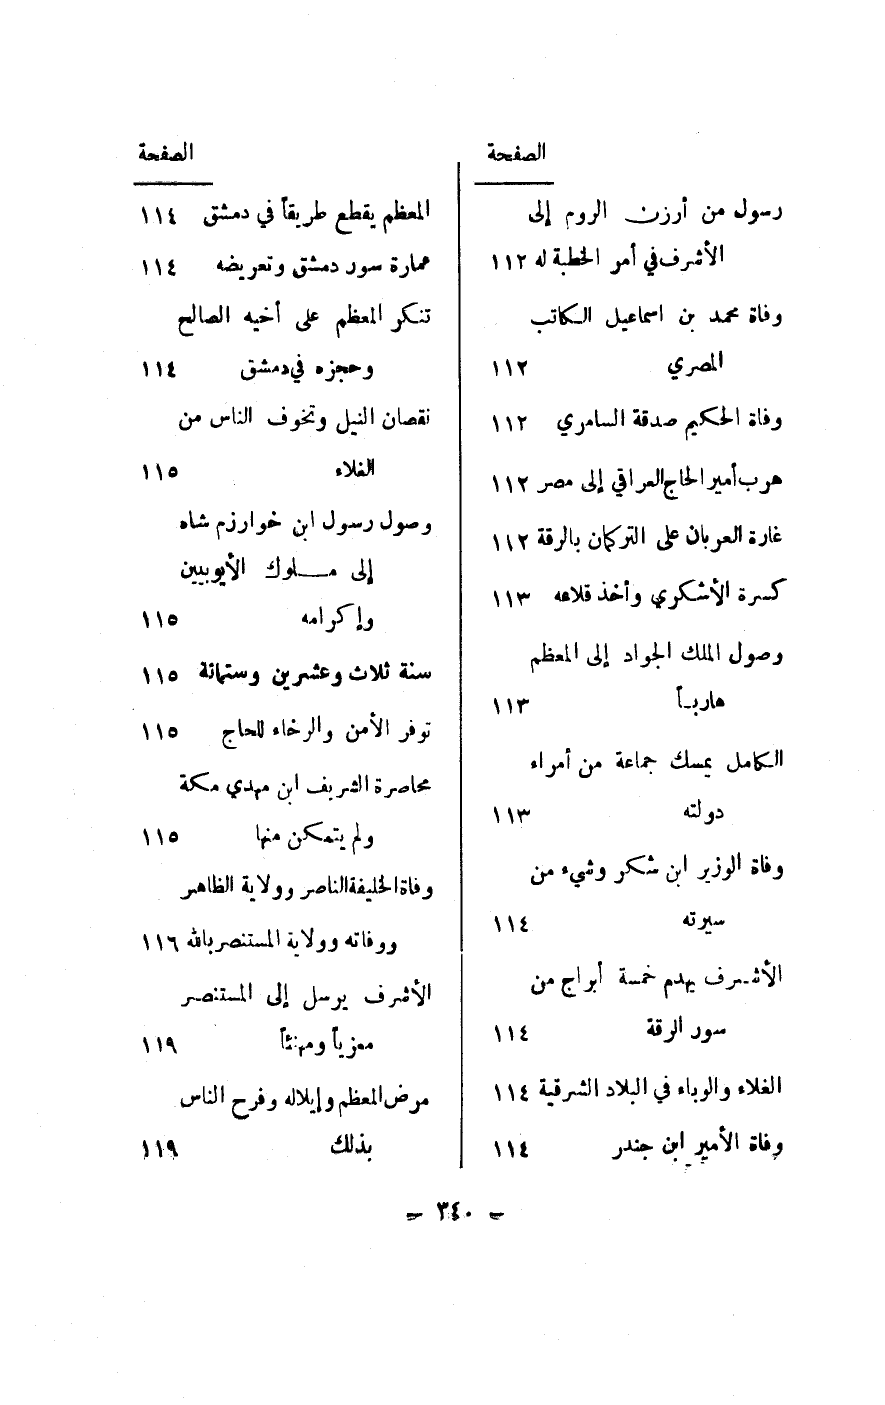 الصفحة
رسول من أرزن الروم إلى
الأشرف في أمر الخطبة له ١١٢
وفاة محمد بن اسماعيل الكاتب
المصري ١١٢
وفاة الحكيم صدقة السامري ١١٢
هرب أمير الحاج العراقي إلى مصر ١١٢
غارة العربان على التركمان بالرقة ١١٢
كسرة الأشكري وأخذ قلاعه ١١٣
وصول الملك الجواد إلى المعظم
هارباً ١١٣
الكامل يمسك جماعة من أمراء
دولته ١١٣
وفاة الوزير ابن شكر وشيء من
سيرته ١١٤
الأشرف يهدم خمسة أبراج من
سور الرقة ١١٤
الغلاء والوباء في البلاد الشرقية ١١٤
وفاة الأمير ابن جندر ١١٤
الصفحة
المعظم يقطع طريقاً في دمشق ١١٤
عمارة سور دمشق وتعريضه ١١٤
تنكر المعظم على أخيه الصالح
وحجزه في دمشق ١١٤
نقصان النيل وتخوف الناس من
الغلاء ١١٥
وصول رسول ابن خوارزم شاه
إلى ملوك الأيوبيين
وإكرامه ١١٥
سنة ثلاث وعشرين وستمائة ١١٥
توفر الأمن والرخاء للحاج ١١٥
محاصرة الشريف ابن مهدي مكة
ولم يتمكن منها ١١٥
وفاة الخليفة الناصر وولاية الظاهر
ووفاته وولاية المستنصر بالله ١١٦
الأشرف يرسل إلى المستنصر
معزياً ومهنئاً ١١٩
مرض المعظم وإبلاله وفرح الناس
بذلك ١١٩
– ٣٤٠ –